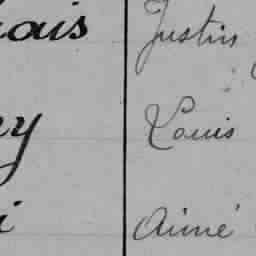 ais Justin
y Louis
i Aimé